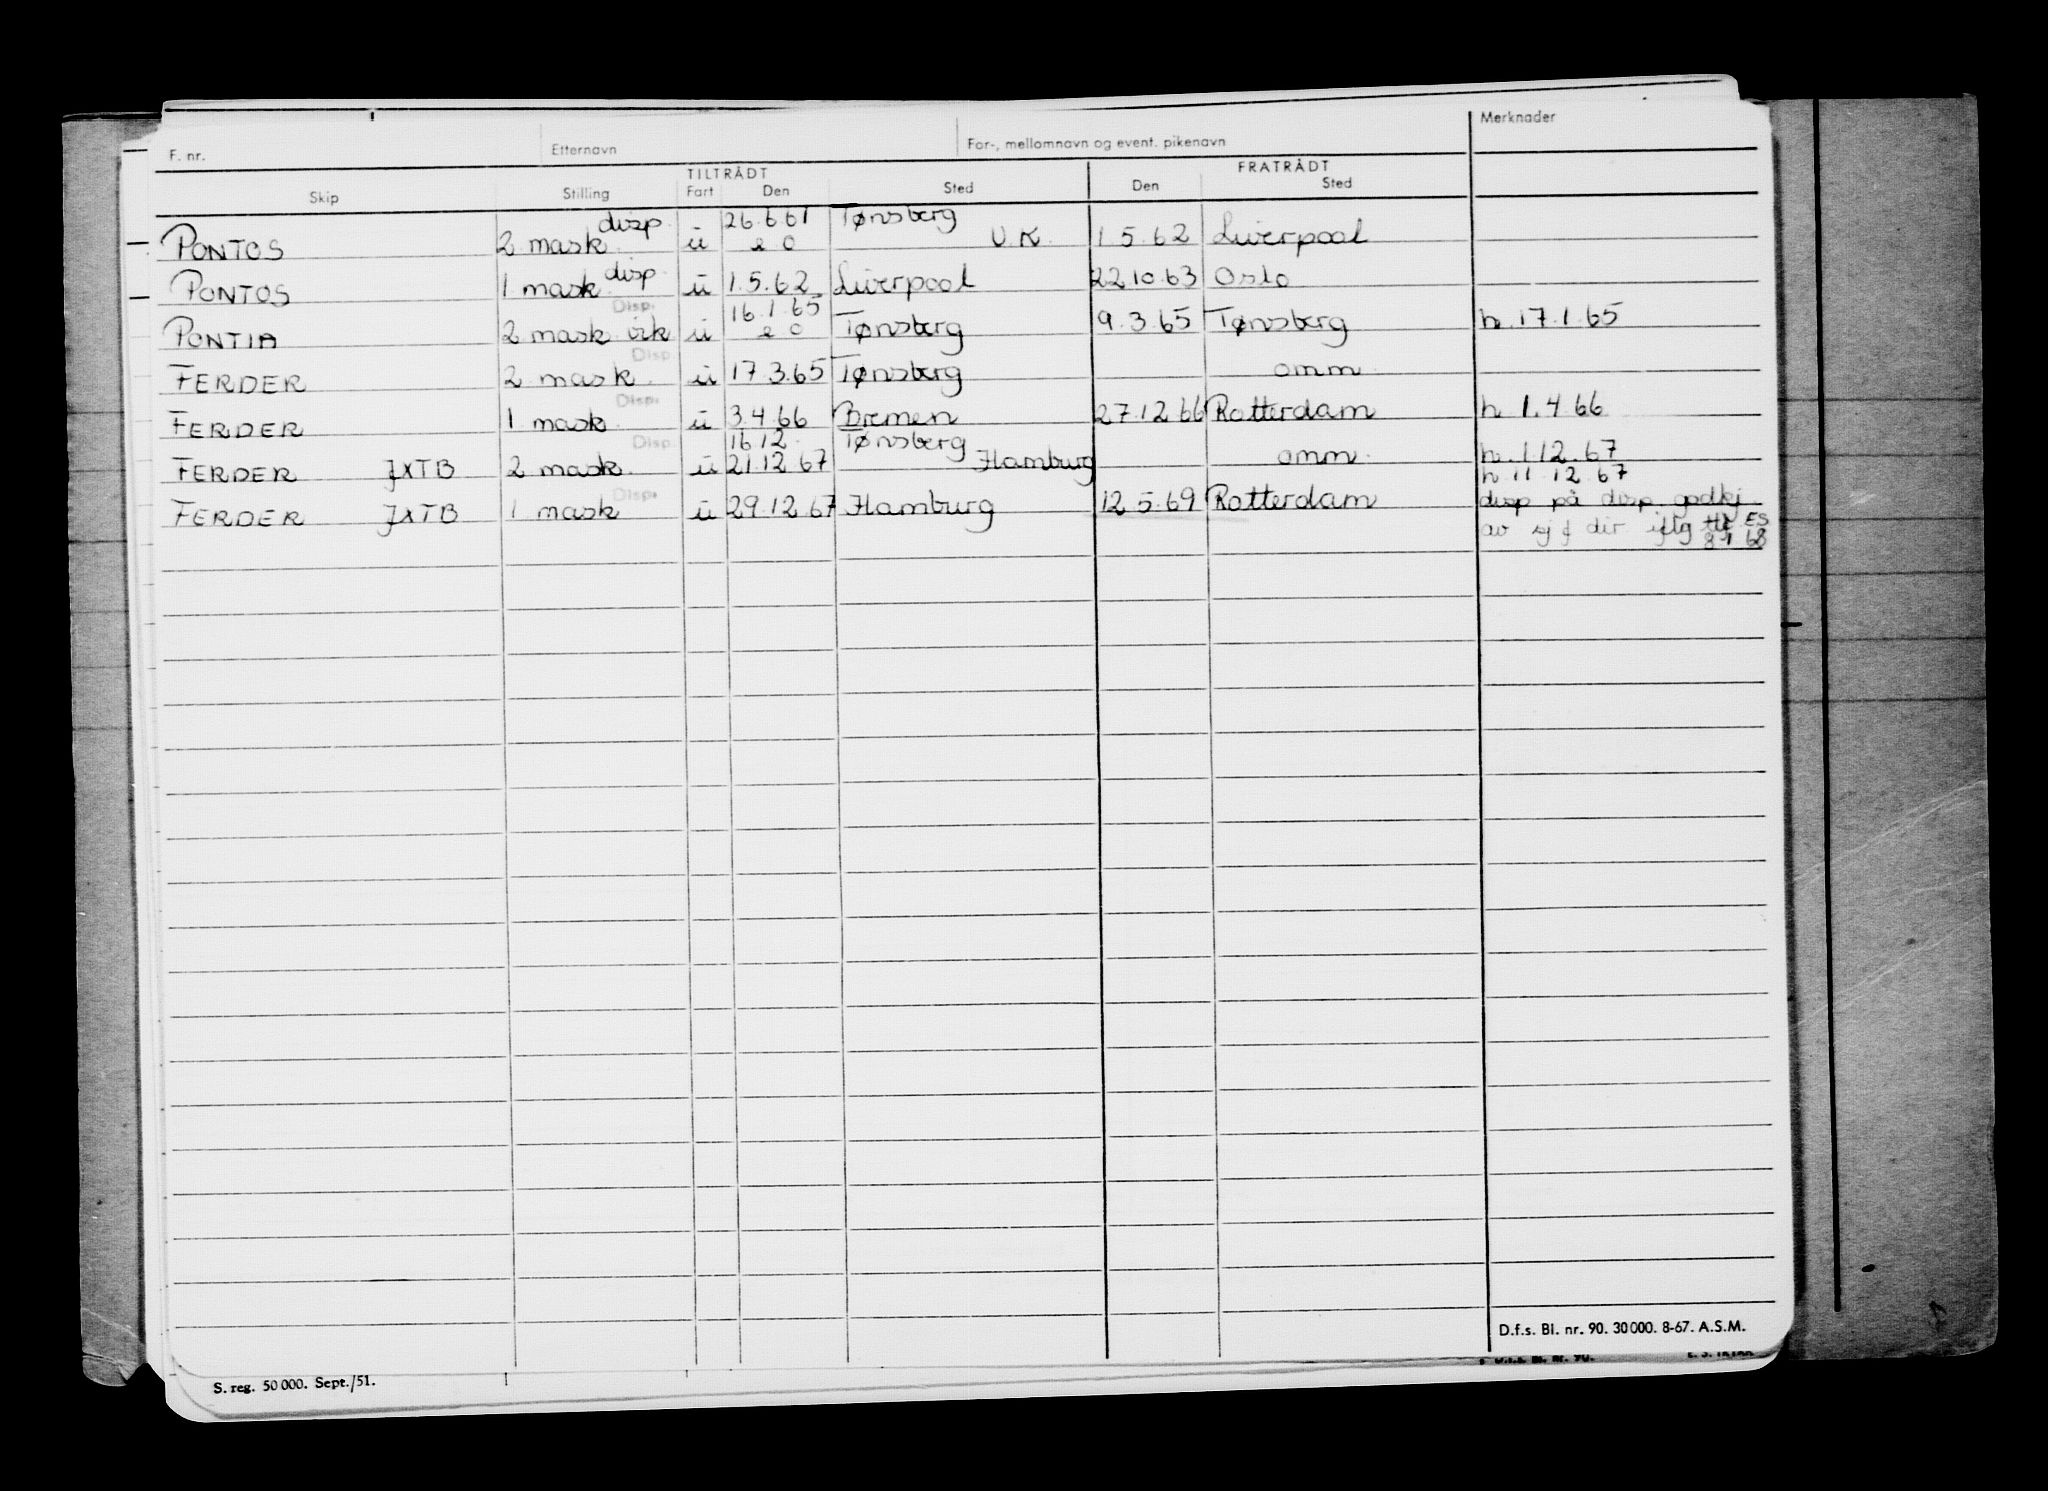 Merknader
F. nr. Efternavn For-, mellomnavn og event. pikenavn
TILTRÅDT FRATRÅDT
Skip Stilling Fart Den Sted Den Sted
disp. 26.6.61 Tønsberg
PONTOS 2 mask. u 20 U.K. 1.5.62 Liverpool
disp.
PONTOS 1 mask. u 1.5.62 Liverpool 22.10.63 Oslo
Disp. 16.1.65
PONTIA 2 mask vik u 20 Tønsberg 9.3.65 Tønsberg h. 17.1.65
Disp.
FERDER 2 mask. u 17.3.65 Tønsberg omm
Disp.
FERDER 1 mask. u 3.4.66 Bremen 27.12.66 Rotterdam h 1.4.66
Disp. 16.12. Tønsberg
FERDER JXTB 2 mask. u 21.12.67 Hamburg omm. h. 1.12.67
Disp. h 11.12.67
FERDER JXTB 1 mask u 29.12.67 Hamburg 12.5.69 Rotterdam disp på disp. godkj.
av sj f dir iflg ES
8.1.68
D.f.s. Bl. nr. 90. 30 000. 8-67. A.S.M.
S. reg. 50 000. Sept./51.